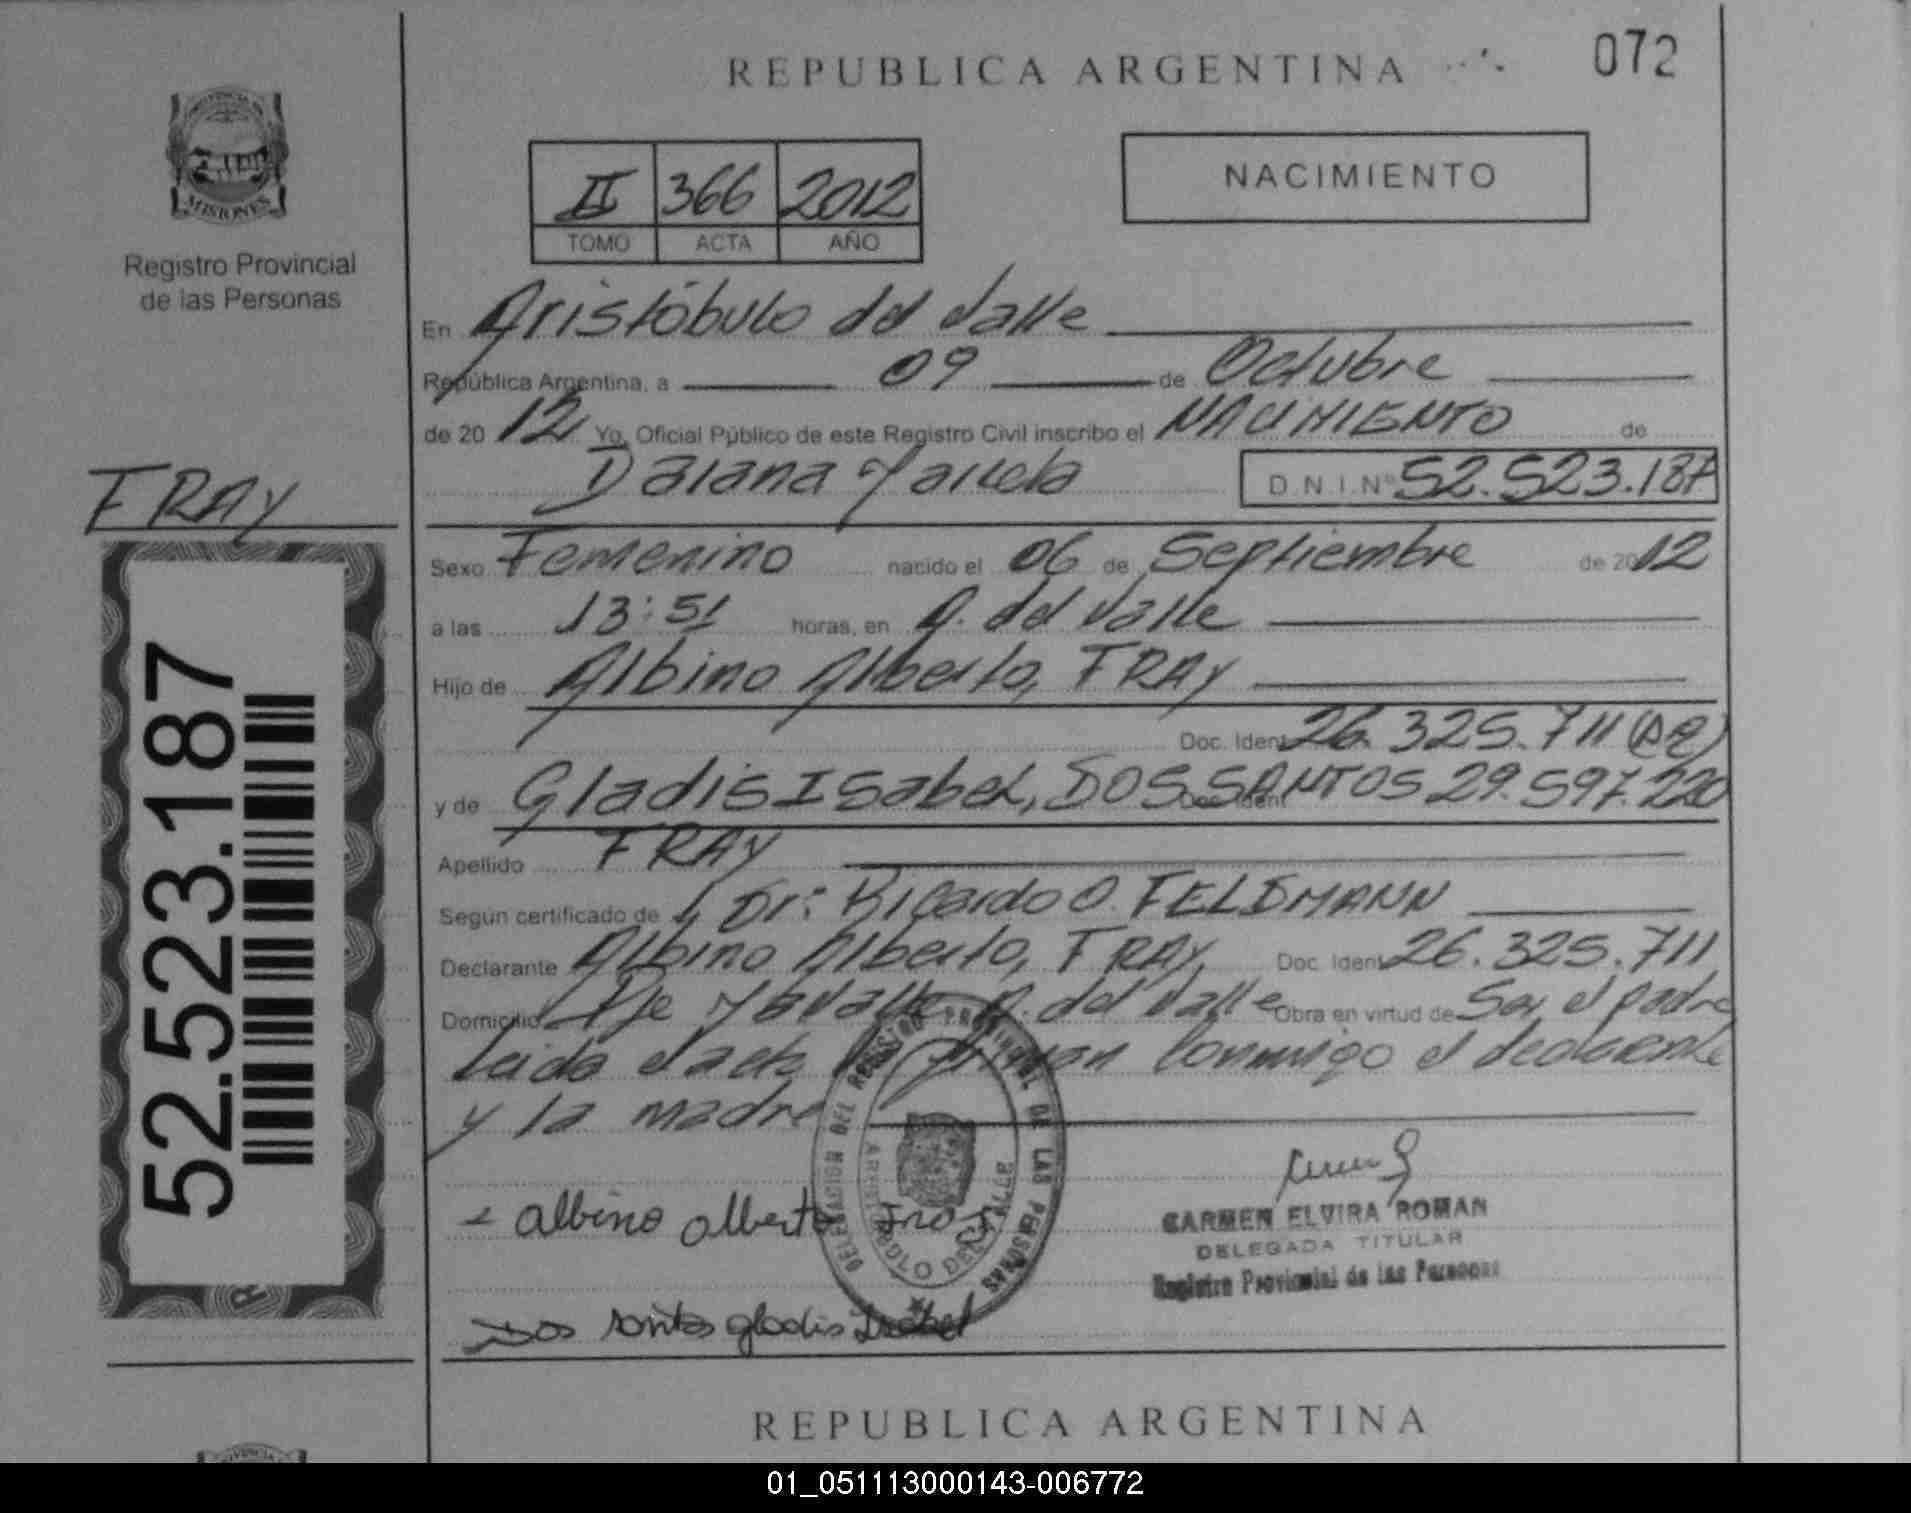 REPUBLICA ARGENTINA
072
MISIONES
Registro Provincial
de las Personas
II 366 2012
TOMO ACTA AÑO
NACIMIENTO
En Aristóbulo del Valle
República Argentina, a 09 de Octubre
de 20 12 Yo, Oficial Público de este Registro Civil inscribo el NACIMIENTO de
Daiana D.N.I.Nº 52.523.187
FRAY
52.523.187
Sexo Femenino nacido el 06 de Septiembre de 2012
a las 13:51 horas, en A. del Valle
Hijo de Albino Alberto, FRAY
Doc. Ident 26.325.711
y de Gladis Isabel, DOS SANTOS Doc. Ident 29.597.220
Apellido FRAY
Según certificado de Dr: Ricardo O. FELDMANN
Declarante Albino Alberto, FRAY Doc. Ident 26.325.711
Domicilio A. del Valle Obra en virtud de Ser el padre
Leida el acta firman conmigo el declarante
y la madre
DELEGACION DEL REGISTRO PROVINCIAL DE LAS PERSONAS
ARISTOBULO DEL VALLE
Albino Alberto Fray
CARMEN ELVIRA ROMAN
DELEGADA TITULAR
Registro Provincial de las Personas
Dos santos gladis Isabel
REPUBLICA ARGENTINA
01_051113000143-006772